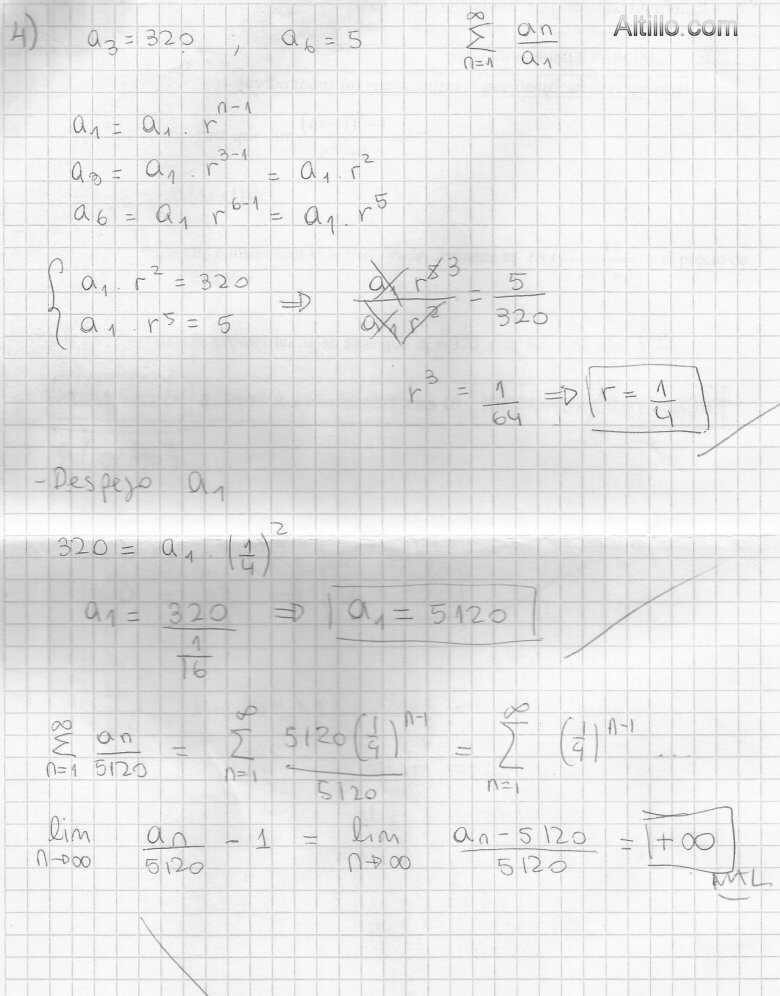 4) a₃ = 320 , a₆ = 5 ∞ ∑ n=1 an/a₁ Altillo.com
a₁ = a₁ . r^(n-1)
a₃ = a₁ . r^(3-1) = a₁ . r²
a₆ = a₁ r^(6-1) = a₁ . r⁵
{ a₁ . r² = 320 ⇒ a₁ r⁵ ³ / a₁ r² = 5/320
a₁ . r⁵ = 5
r³ = 1/64 ⇒ r = 1/4
- Despejo a₁
320 = a₁ . (1/4)²
a₁ = 320/(1/16) ⇒ a₁ = 5120
∞ ∑ n=1 an/5120 = ∞ ∑ n=1 5120 (1/4)^(n-1) / 5120 = ∞ ∑ n=1 (1/4)^(n-1) ...
lim n→∞ an/5120 - 1 = lim n→∞ (an - 5120)/5120 = +∞
MAL